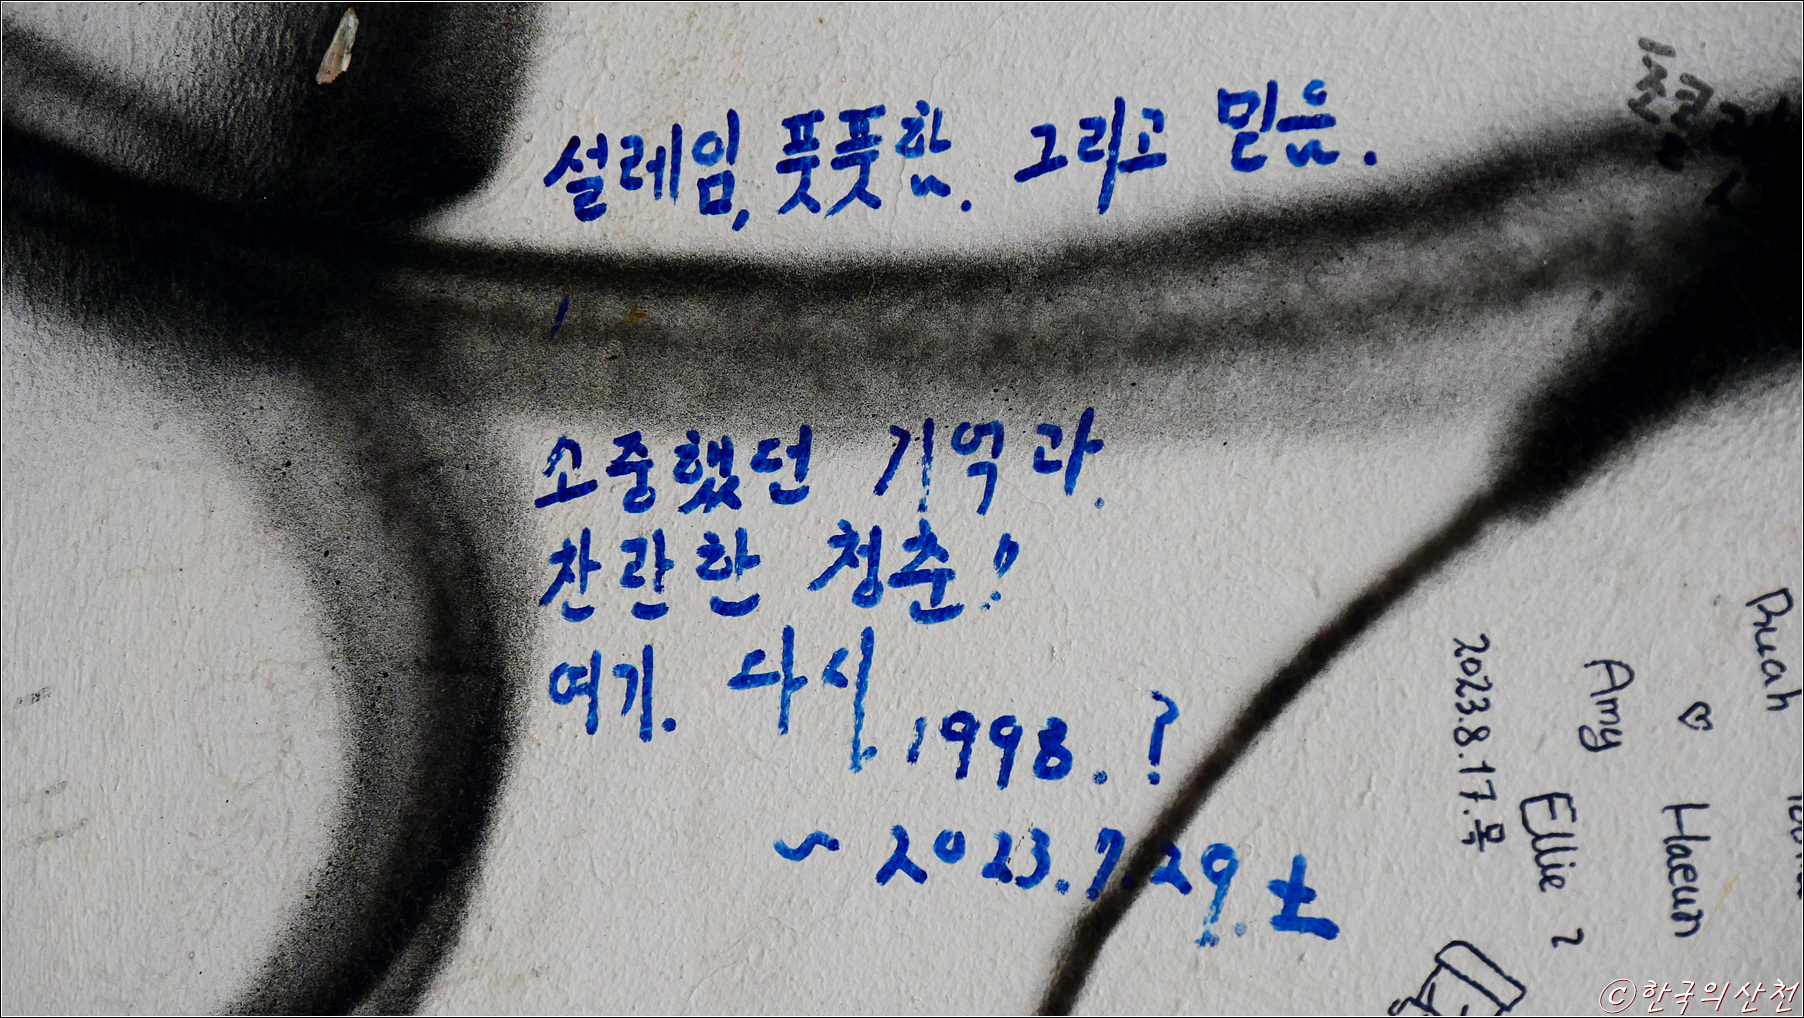 설레임, 풋풋함. 그리고 믿음.
소중했던 기억과
찬란한 청춘!
여기. 다시
1998. ?
~ 2023.7.29. 土
Ruah
♡
Amy
Haeun
2023.8.17.목
Ellie
ⓒ한국의산천